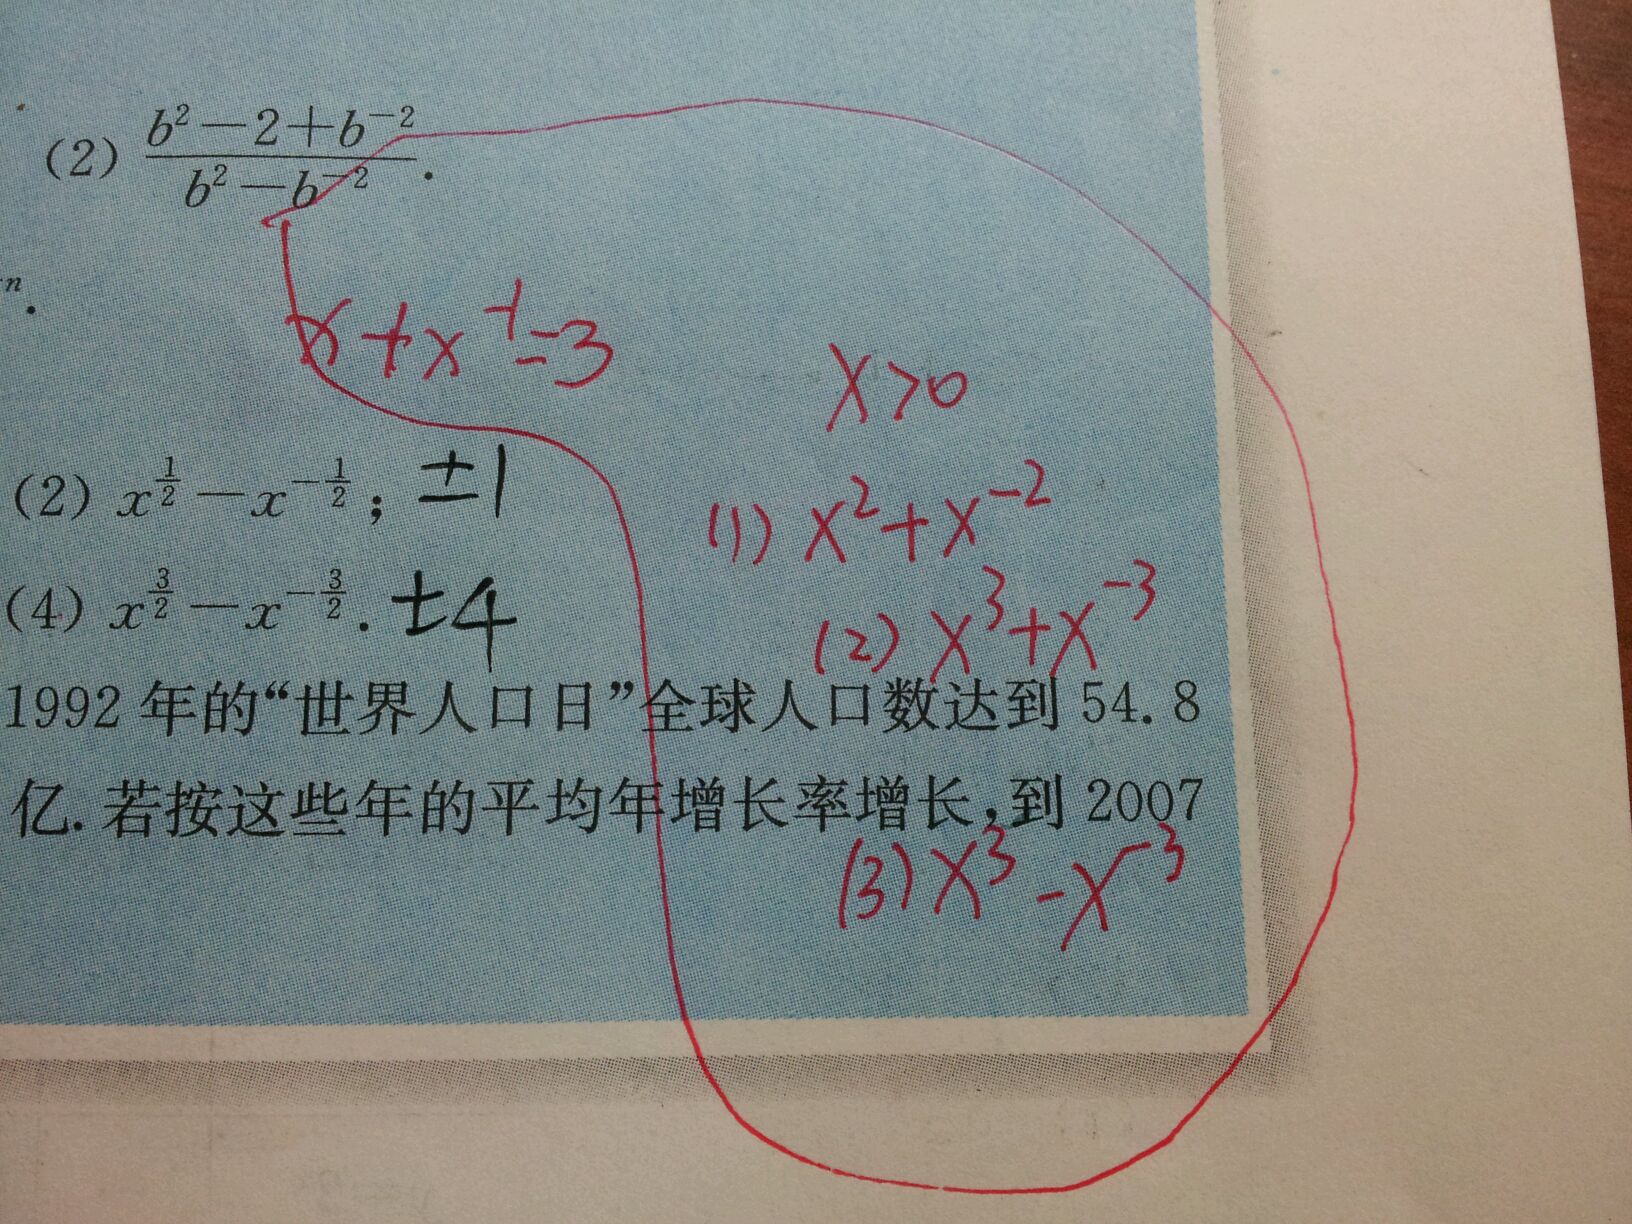 (2) \frac{b²－2＋b⁻²}{b²－b⁻²}.
n.
x+x⁻¹=3
x>0
(2) x^{\frac{1}{2}}－x^{-\frac{1}{2}}; ±1
(1) x²+x⁻²
(4) x^{\frac{3}{2}}－x^{-\frac{3}{2}}. ±4
(2) x³+x⁻³
1992 年的“世界人口日”全球人口数达到 54.8
亿.若按这些年的平均年增长率增长,到 2007
(3) x³-x⁻³